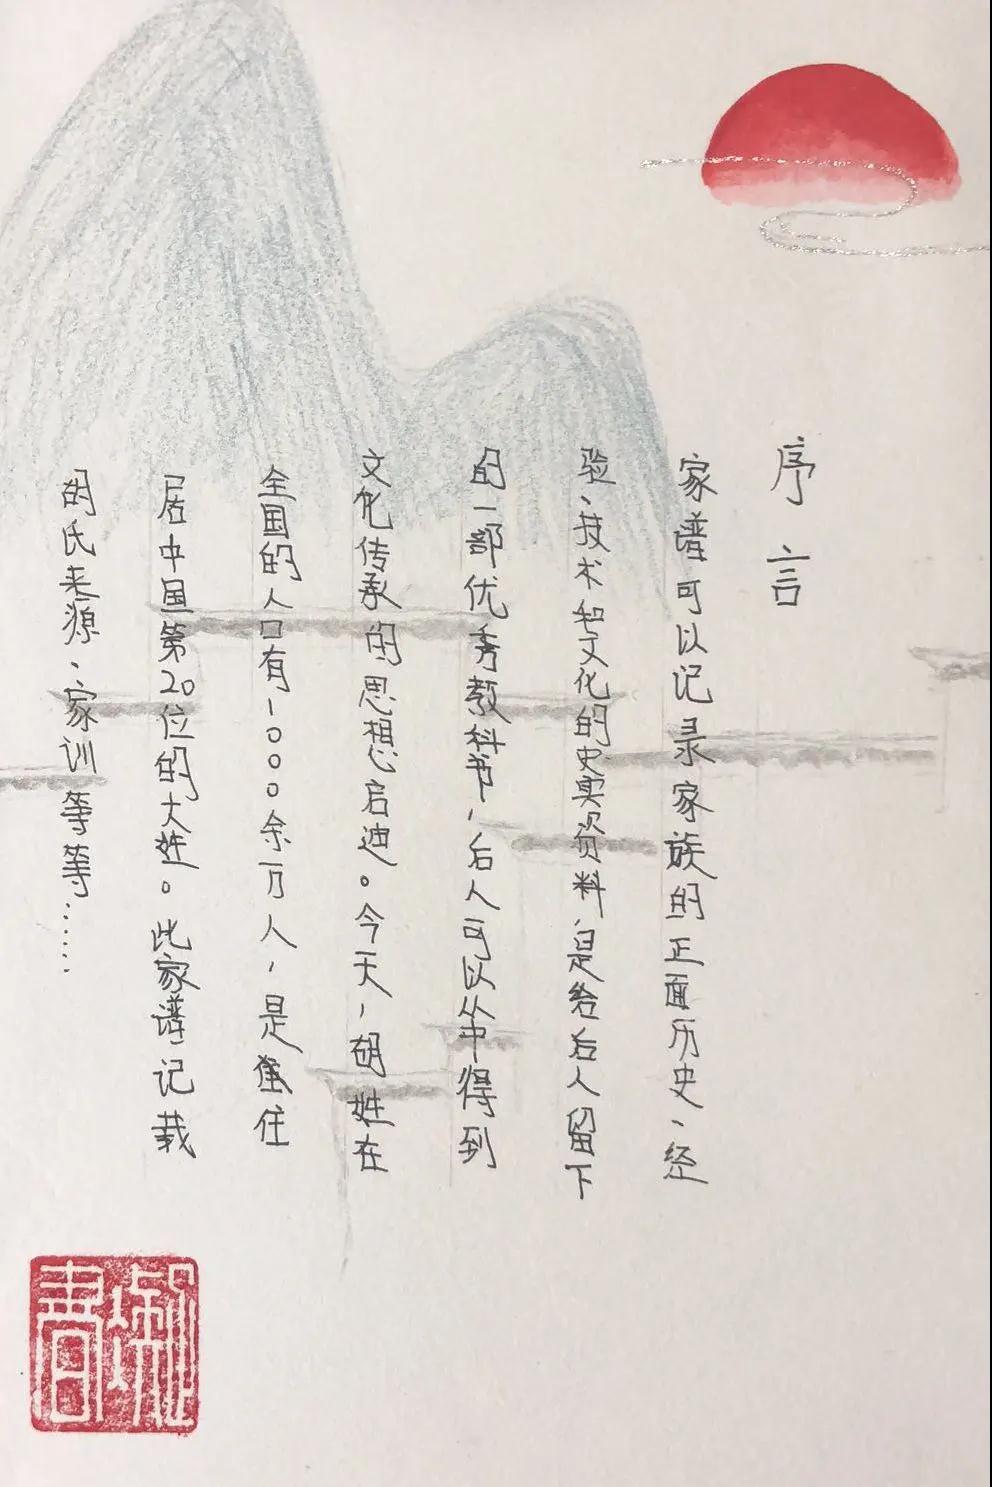 序言
家谱可以记录家族的正面历史、经
验、技术和文化的史实资料,是给后人留下
的一部优秀教科书,后人可以从中得到
文化传承的思想启迪。今天,胡姓在
全国的人口有1000余万人,是集住
居中国第20位的大姓。此家谱记载
胡氏来源、家训等等……
書